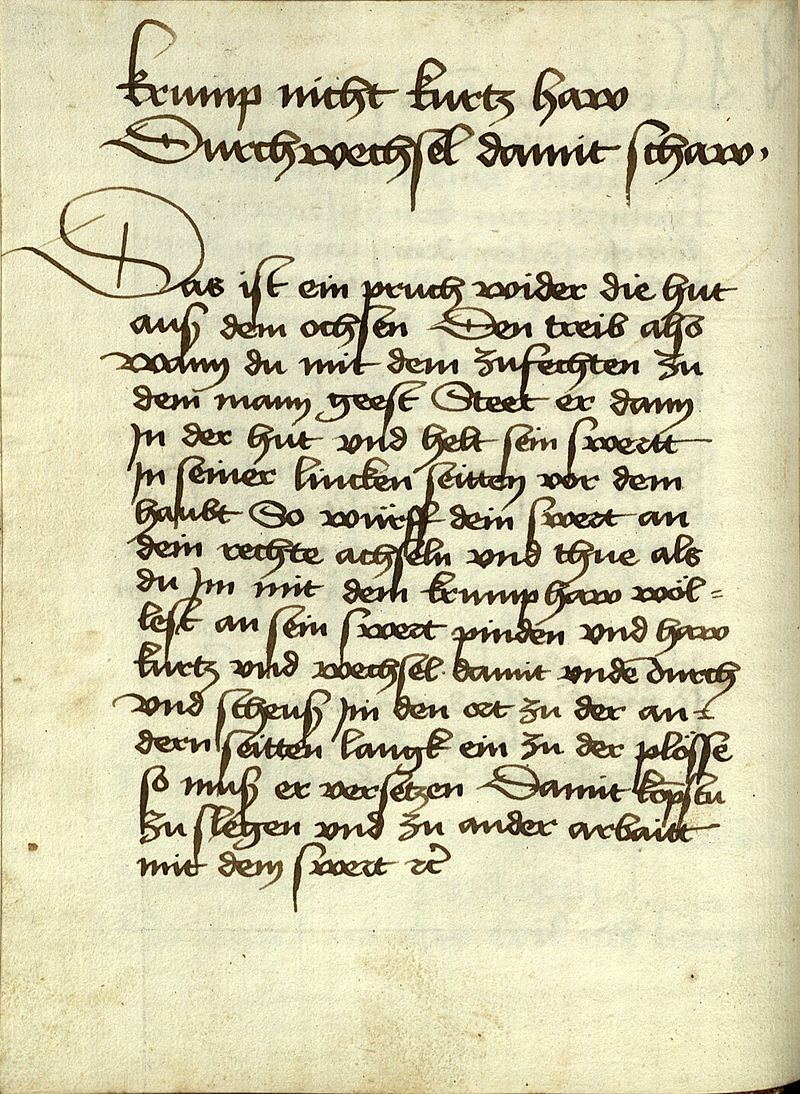 krump nicht kurtz haw
Durchwechsel damit schaw.
Das ist ein pruch wider die hut
auß dem ochsen Den treib alßo
wann du mit dem zufechten zu
dem mann geest Steet er dann
Jn der hut vnd helt sein swertt
Jn seiner lincken seitten vor dem
haubt So würff dein swert an
dein rechte achseln vnd thue als
du Jm mit dem krumphaw wöl=
lest an sein swert pinden vnd haw
kurtz vnd wechsel damit vndē durch
vnd scheuß Jm den ort zu der an=
dern seitten langk ein zu der plösse
so muß er versetzen Damit kōpstu
zu slegen vnd zu ander arbaitt
mit dem swert ꝛc̄